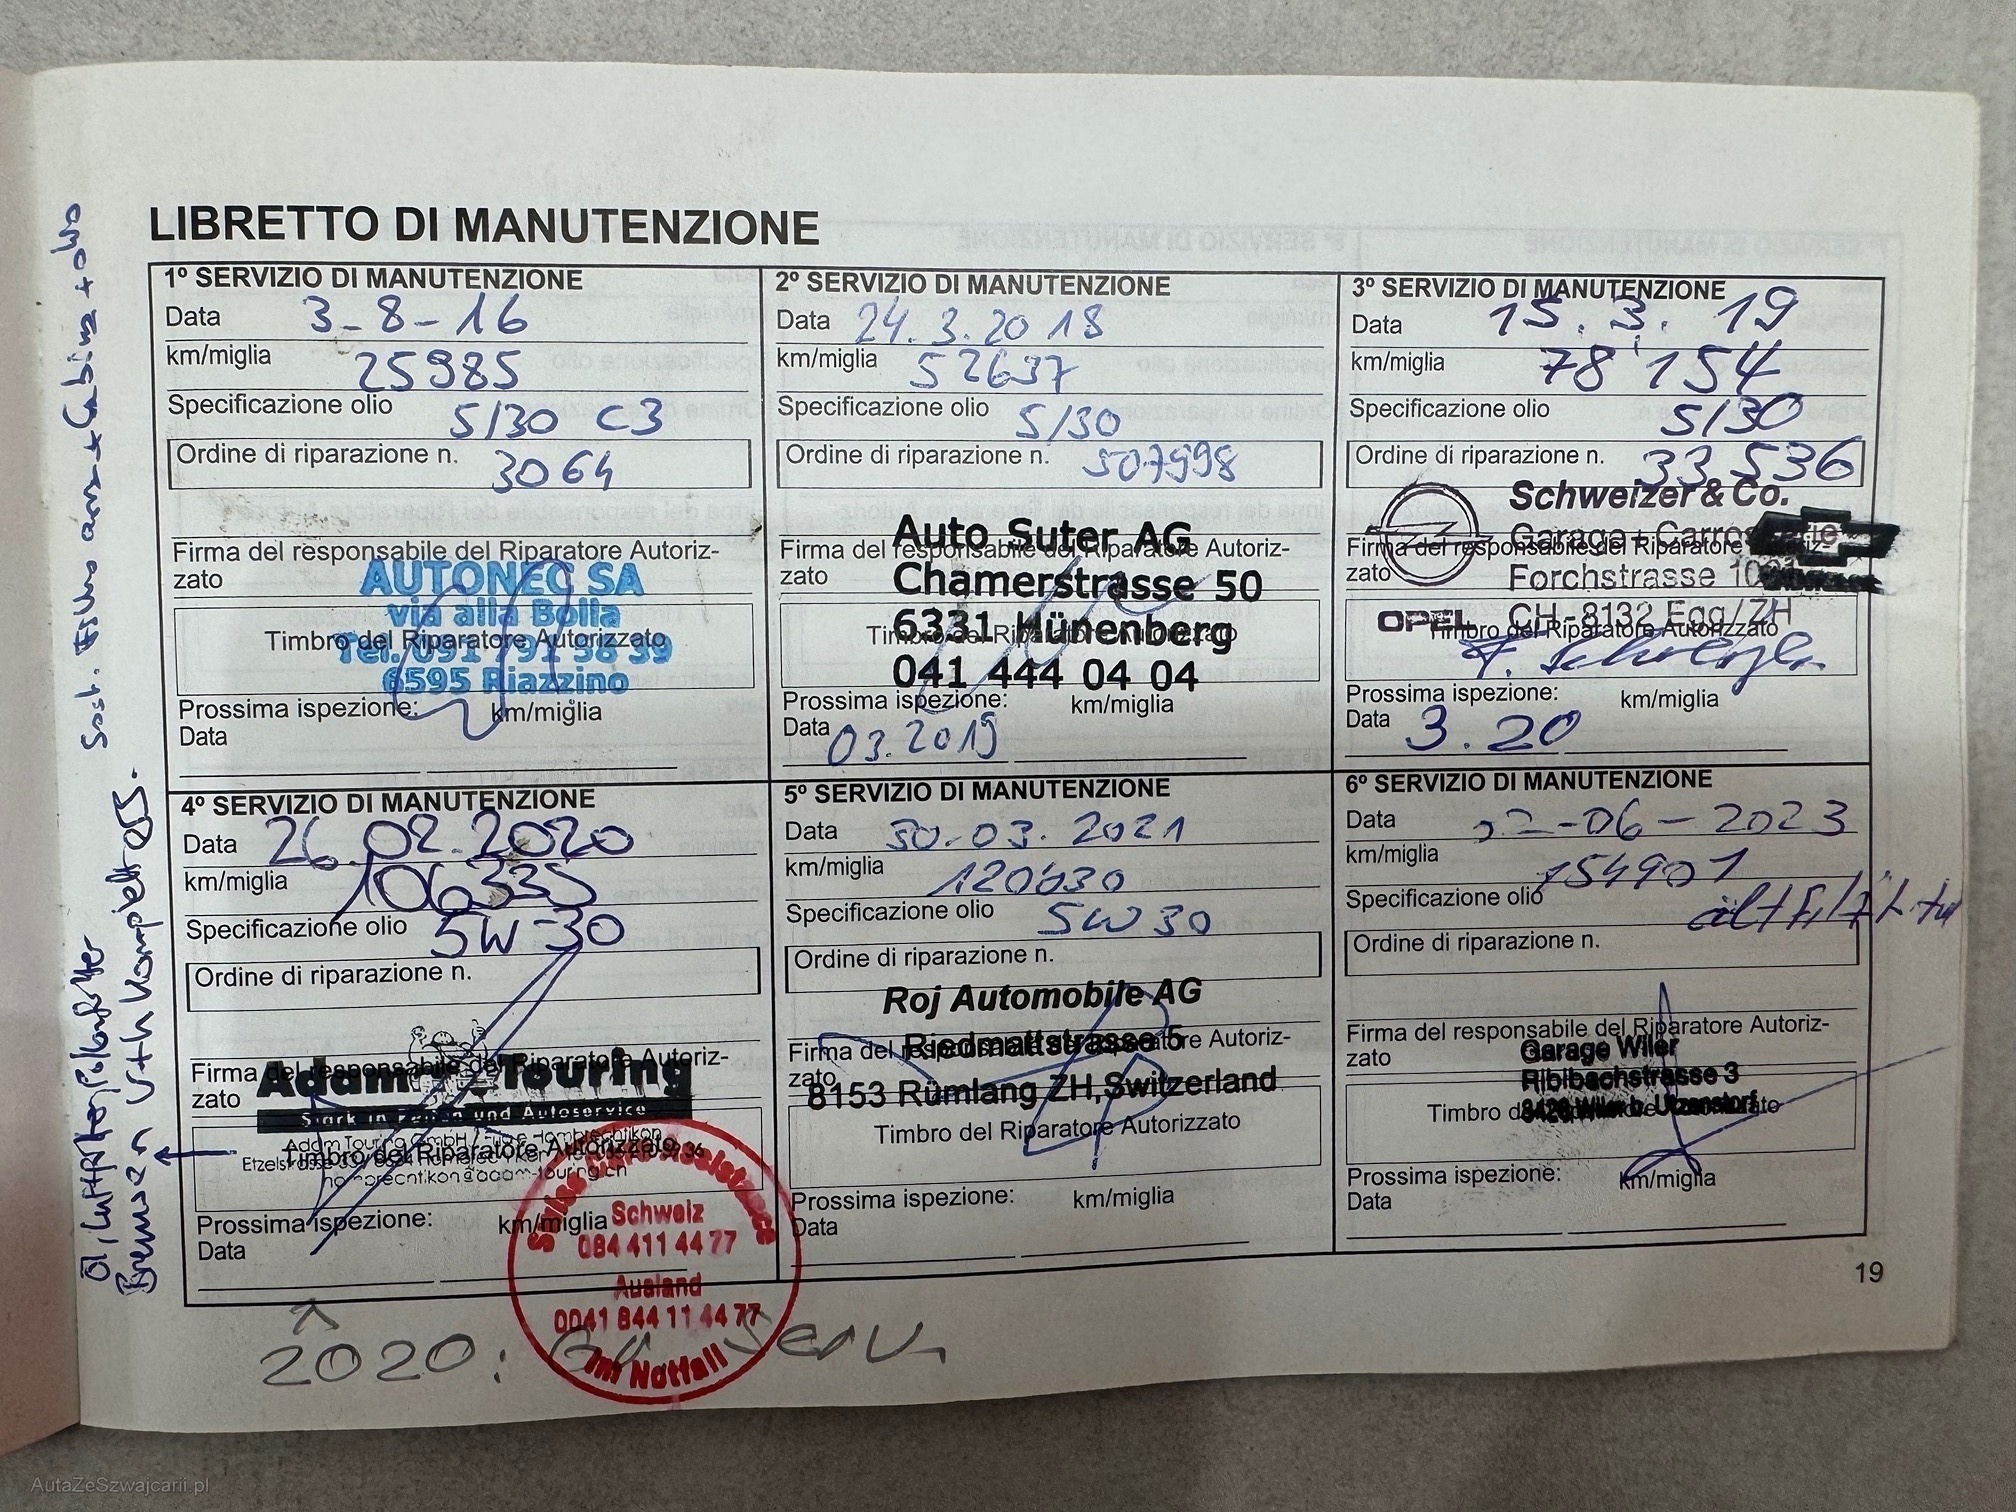 LIBRETTO DI MANUTENZIONE
1º SERVIZIO DI MANUTENZIONE
Data 3-8-16
km/miglia 25985
Specificazione olio 5/30 C3
Ordine di riparazione n. 3064
Firma del responsabile del Riparatore Autoriz-
zato
AUTONEC SA
via alla Bolla
Timbro del Riparatore Autorizzato
Tel. 091 791 38 39
6595 Riazzino
Prossima ispezione: km/miglia
Data
2º SERVIZIO DI MANUTENZIONE
Data 24.3.2018
km/miglia 52637
Specificazione olio 5/30
Ordine di riparazione n. 507998
Auto Suter AG
Firma del responsabile del Riparatore Autoriz-
zato
Chamerstrasse 50
6331 Hünenberg
Timbro del Riparatore Autorizzato
041 444 04 04
Prossima ispezione: km/miglia
Data 03.2019
3º SERVIZIO DI MANUTENZIONE
Data 15.3.19
km/miglia 78'154
Specificazione olio 5/30
Ordine di riparazione n. 33536
Schweizer & Co.
Garage + Carrosserie
Firma del responsabile del Riparatore Autoriz-
zato
Forchstrasse
OPEL CH-8132 Egg/ZH
Timbro del Riparatore Autorizzato
Prossima ispezione: km/miglia
Data 3.20
4º SERVIZIO DI MANUTENZIONE
Data 26.02.2020
km/miglia 106335
Specificazione olio 5W-30
Ordine di riparazione n.
Firma del responsabile del Riparatore Autoriz-
zato
Adam Touring
Stark in Reifen und Autoservice
Adam Touring GmbH / Filiale Hombrechtikon
Timbro del Riparatore Autorizzato
hombrechtikon@adam-touring.ch
Prossima ispezione: km/miglia
Data
Schweiz
084 411 44 77
Ausland
0041 844 11 44 77
Im Notfall
5º SERVIZIO DI MANUTENZIONE
Data 30-03.2021
km/miglia 120630
Specificazione olio 5W30
Ordine di riparazione n.
Roj Automobile AG
Riedmattstrasse 5
Firma del responsabile del Riparatore Autoriz-
zato
8153 Rümlang ZH,Switzerland
Timbro del Riparatore Autorizzato
Prossima ispezione: km/miglia
Data
6º SERVIZIO DI MANUTENZIONE
Data -06-2023
km/miglia 154901
Specificazione olio
Ordine di riparazione n.
Firma del responsabile del Riparatore Autoriz-
zato
Garage Wiler
Ribibachstrasse 3
Timbro del Riparatore Autorizzato
Wiler b. Utzenstorf
Prossima ispezione: km/miglia
Data
19
2020:
Sost. Filtro aria + Cabina + olio
AutaZeSzwajcarii.pl